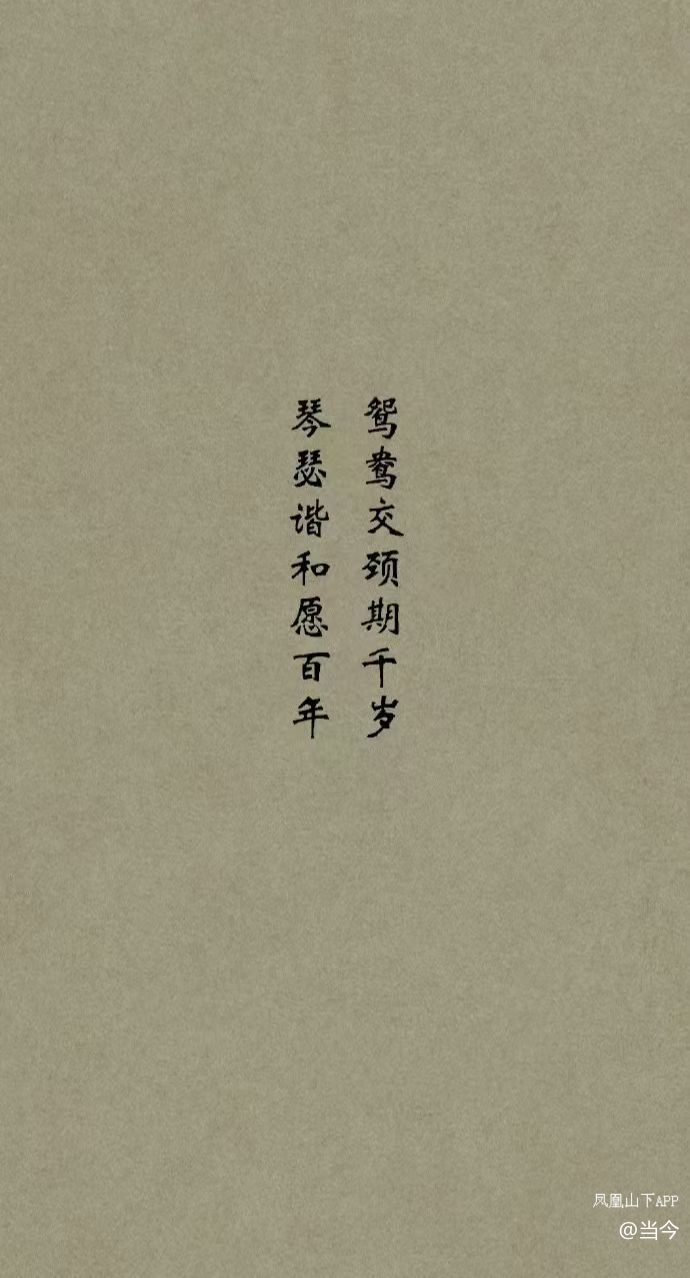 鸳鸯交颈期千岁
琴瑟谐和愿百年
凤凰山下APP
@当今